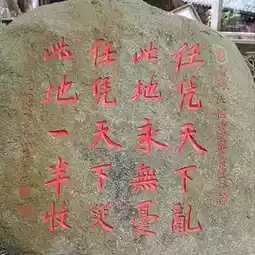 任凭天下亂
此地永無憂
任凭天下災
此地一半收